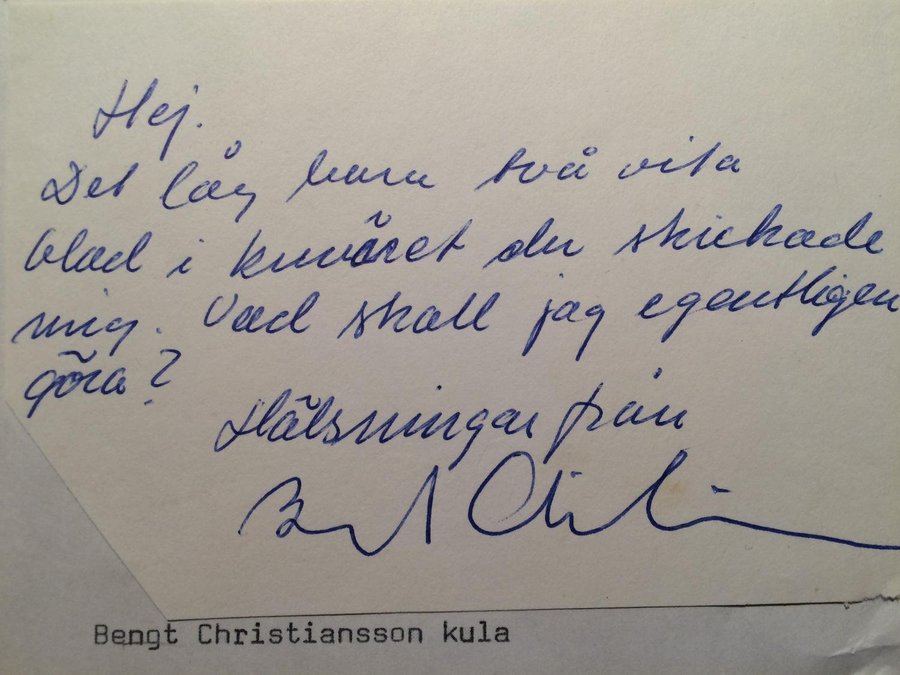 Hej.
Det låg bara två vita
blad i kuvöret du skickade
mig. Vad skall jag egentligen
göra?
Hälsningar från
Bengt Christiansson kula